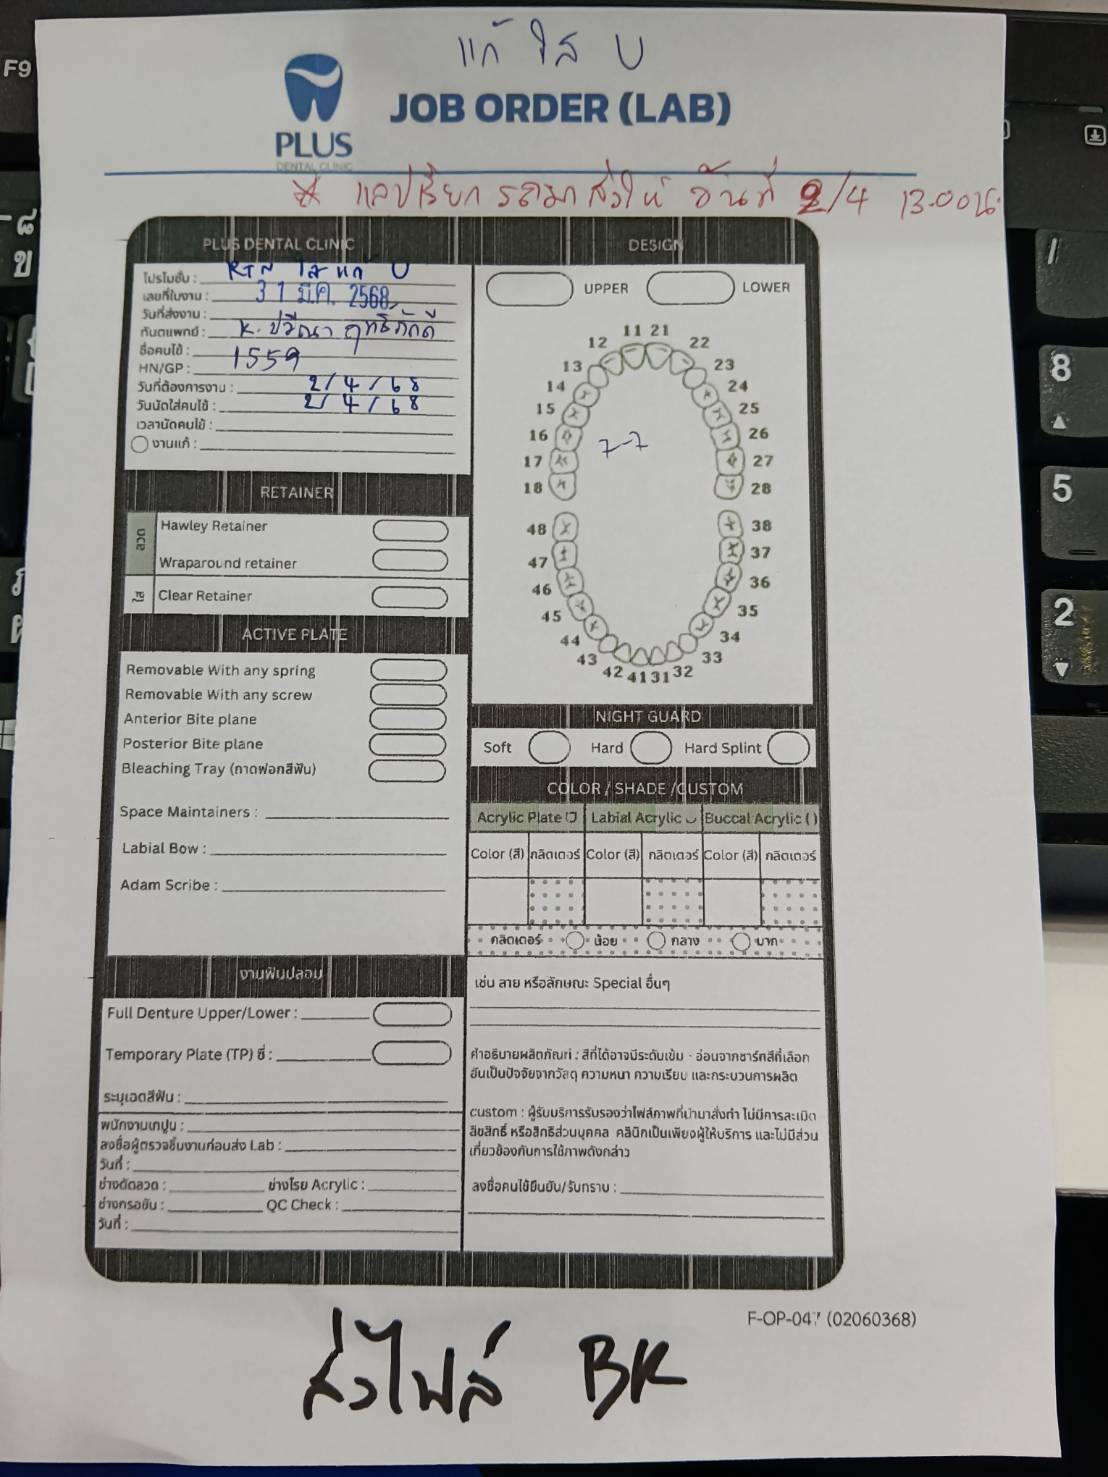 แก้ ใส U
PLUS
DENTAL CLINIC
JOB ORDER (LAB)
* แลปเรียกรถมาส่งให้ วันที่ 2/4 13.00น.
PLUS DENTAL CLINIC
โปรโมชั่น : RTN ใส แก้ U
เลขที่ใบงาน :
วันที่ส่งงาน : 31 มี.ค. 2568
ทันตแพทย์ :
ชื่อคนไข้ : K. ปวีณา ฤทธิภักดี
HN/GP : 1559
วันที่ต้องการงาน : 2/4/68
วันนัดใส่คนไข้ : 2/4/68
เวลานัดคนไข้ :
งานแก้ :
RETAINER
ลวด
Hawley Retainer
Wraparound retainer
ใส
Clear Retainer
ACTIVE PLATE
Removable With any spring
Removable With any screw
Anterior Bite plane
Posterior Bite plane
Bleaching Tray (ถาดฟอกสีฟัน)
Space Maintainers :
Labial Bow :
Adam Scribe :
งานฟันปลอม
Full Denture Upper/Lower :
Temporary Plate (TP) ซี่ :
ระบุเฉดสีฟัน :
พนักงานเทปูน :
ลงชื่อผู้ตรวจชิ้นงานก่อนส่ง Lab :
วันที่ :
ช่างดัดลวด : ช่างโรย Acrylic :
ช่างกรอขัน : QC Check :
วันที่ :
DESIGN
UPPER LOWER
11 21
12 22
13 23
14 24
15 25
16 7-7 26
17 27
18 28
48 38
47 37
46 36
45 35
44 34
43 33
42 41 31 32
NIGHT GUARD
Soft Hard Hard Splint
COLOR / SHADE /CUSTOM
Acrylic Plate Labial Acrylic Buccal Acrylic ( )
Color (สี) กลิตเตอร์ Color (สี) กลิตเตอร์ Color (สี) กลิตเตอร์
กลิตเตอร์ น้อย กลาง มาก
เช่น ลาย หรือลักษณะ Special อื่นๆ
คำอธิบายผลิตภัณฑ์ : สีที่ได้อาจมีระดับเข้ม - อ่อนจากชาร์ทสีที่เลือก
อันเป็นปัจจัยจากวัสดุ ความหนา ความเรียบ และกระบวนการผลิต
custom : ผู้รับบริการรับรองว่าไฟล์ภาพที่นำมาสั่งทำ ไม่มีการละเมิด
ลิขสิทธิ์ หรือสิทธิส่วนบุคคล คลินิกเป็นเพียงผู้ให้บริการ และไม่มีส่วน
เกี่ยวข้องกับการใช้ภาพดังกล่าว
ลงชื่อคนไข้ยืนยัน/รับทราบ :
F-OP-047 (02060368)
ส่งไฟล์ BK
F9
8
5
2